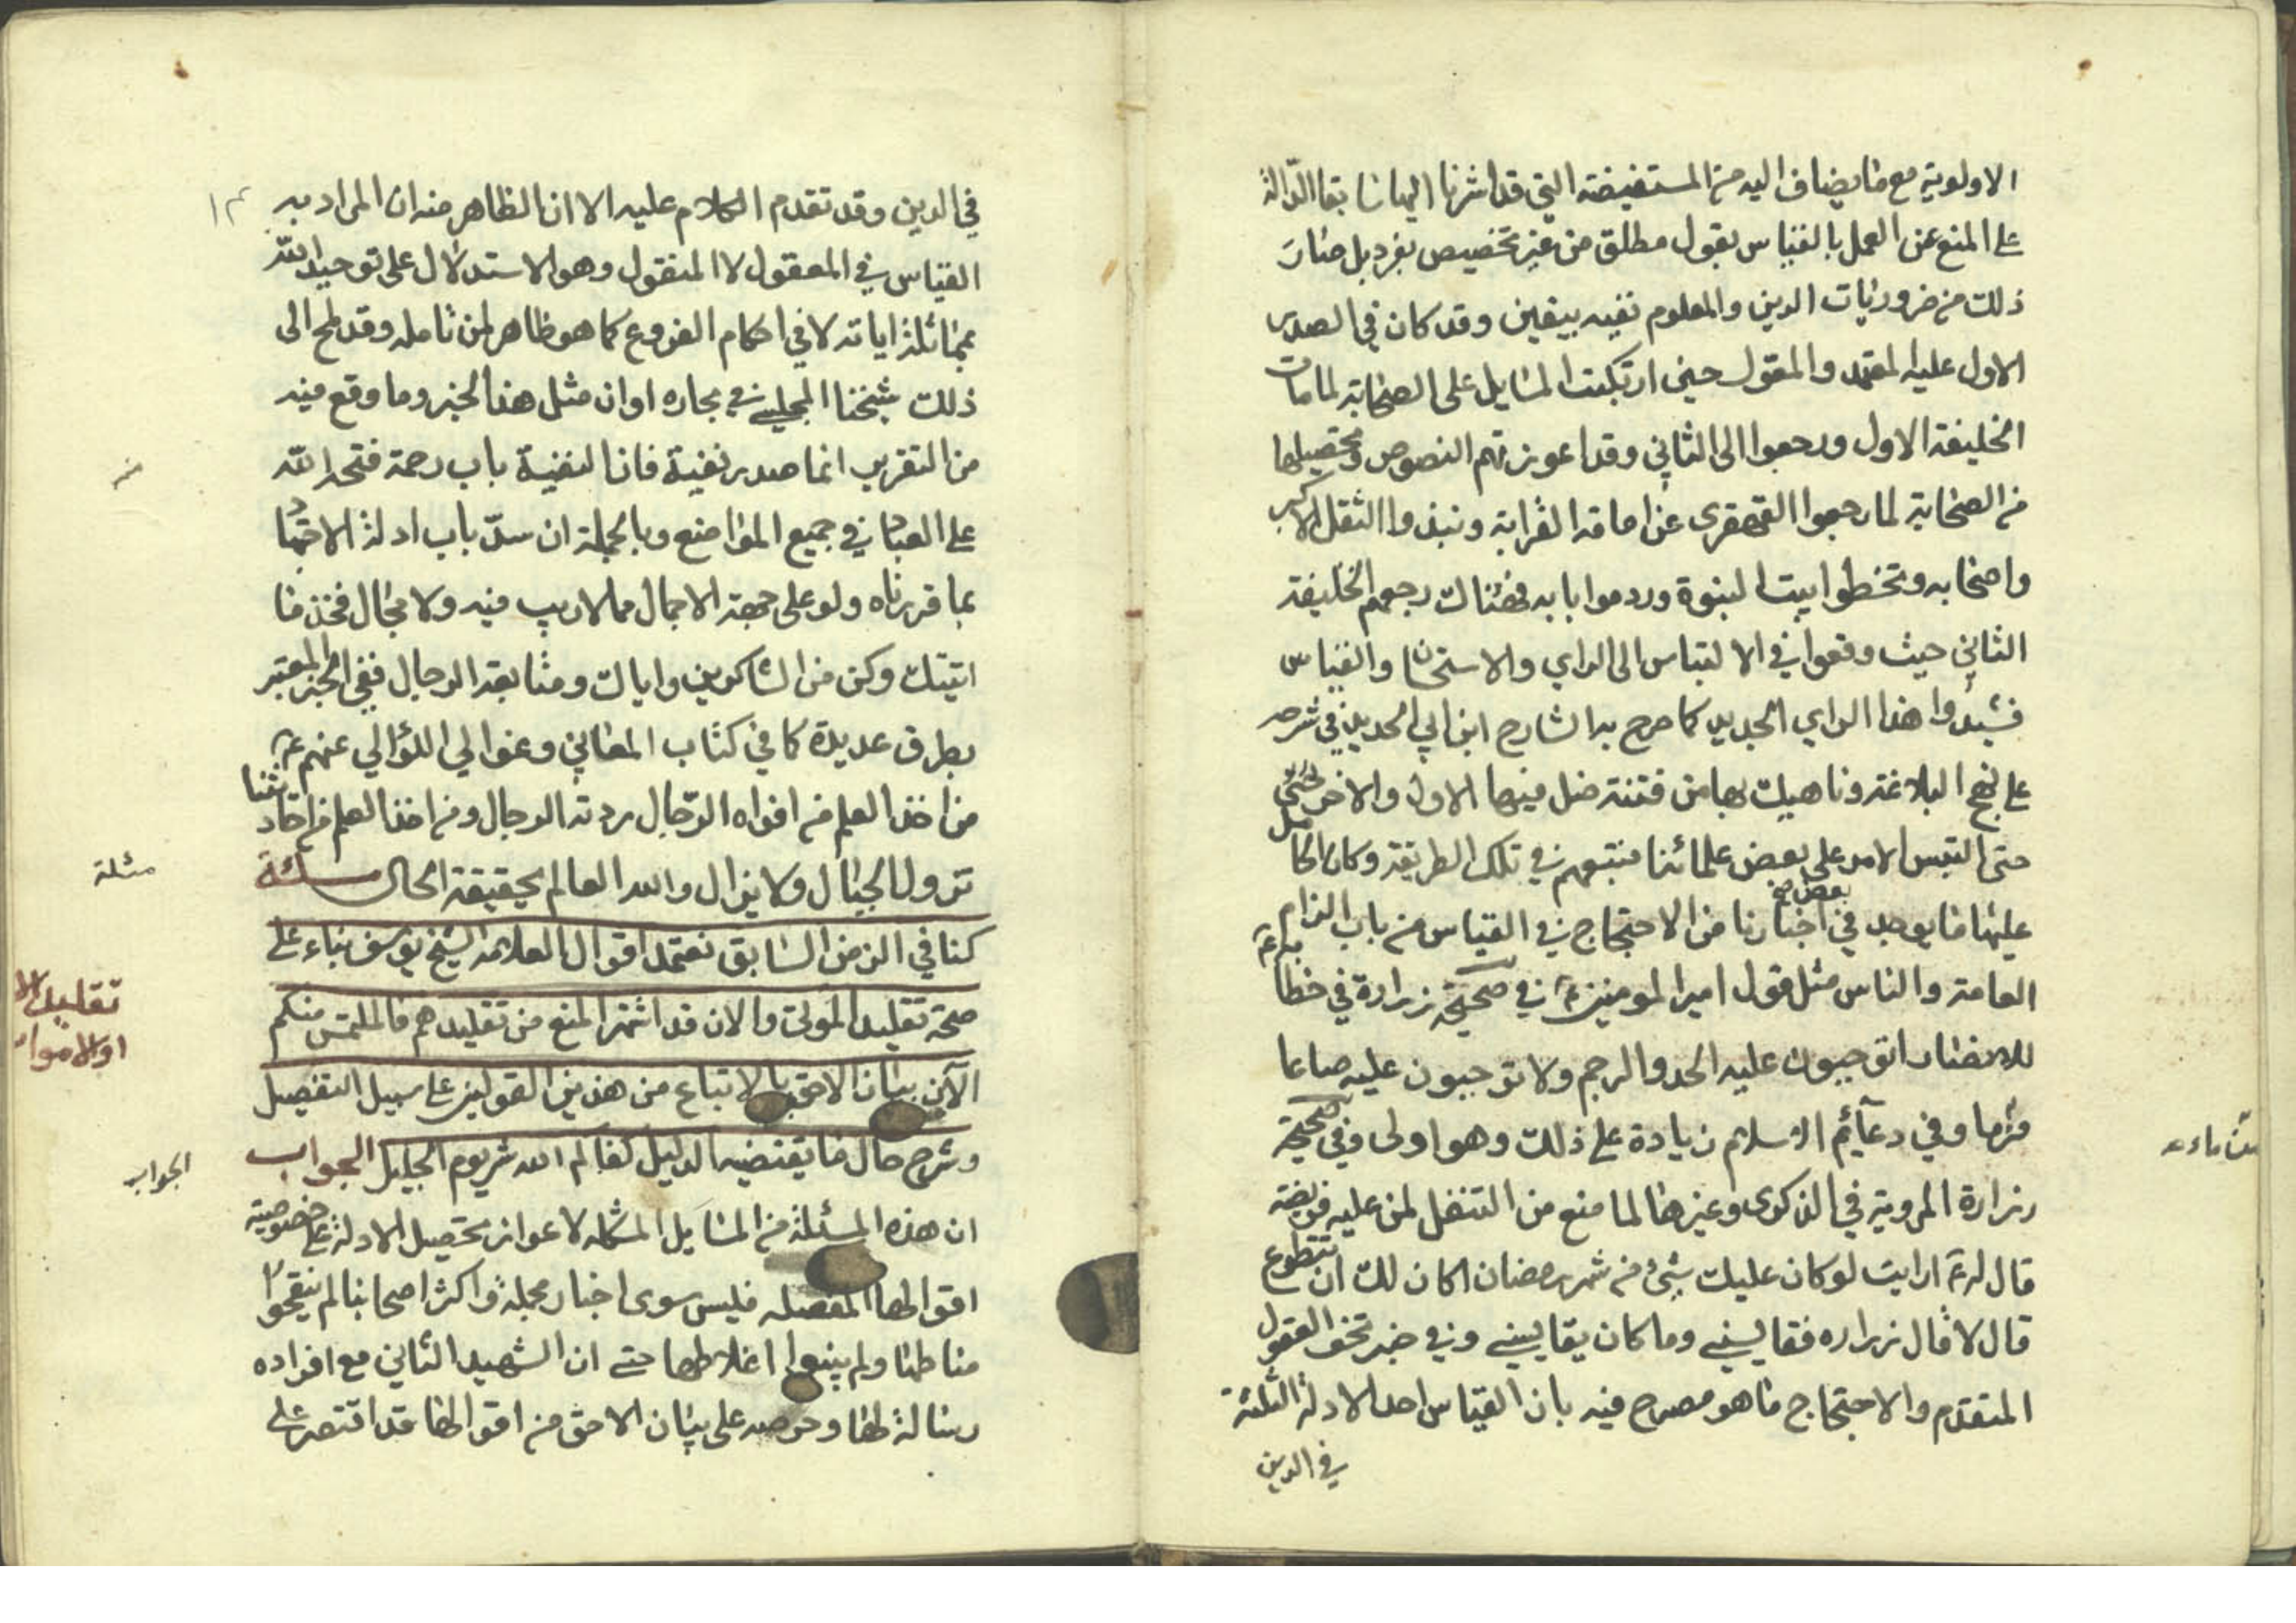 الاولوية مع ما يضاف اليه من المستفيضة التي قد اشرنا اليها سابقا الدالة
على المنع عن العمل بالقياس بقول مطلق من غير تخصيص بفرد بل صار
ذلك من ضروريات الدين والمعلوم نفيه بيقين وقد كان في الصدر
الاول عليه المعتمد والمعول حين ارتبكت المسايل على الصحابة لما مات
الخليفة الاول ورجعوا الى الثاني وقد اعوزتهم النصوص وتحصيلها
من الصحابة لما رجعوا القهقرى عن امامة القرابة ونبذوا الثقل الاكبر
واصحابه وتخطوا بيت النبوة وردموا بابه فهناك رجعهم الخليفة
الثاني حيث وقعوا في الالتباس الى الراي والاستحسان والقياس
فشيدوا هذا الراي الجديد كما صرح به الشارح ابن ابي الحديد في شرحه
على نهج البلاغة وناهيك بها من فتنة ضل فيها الاول والاخر
حتى التبس الامر على بعض علمائنا فتبعهم في تلك الطريقة وكان الحامل
عليها ما يوجد في بعض اخبارنا من الاحتجاج في القياس من باب الزام
العامة والناس مثل قول امير المومنين ع في صحيحة زرارة في خطابه
للانصار اتوجبون عليه الحد والرجم ولا توجبون عليه صاعا
من ماء
من ما وفي دعائم الاسلام زيادة على ذلك وهو اولى وفي صحيحة
زرارة المروية في الذكرى وغيرها لما منع من التنفل لمن عليه فريضة
قال له ع ارايت لو كان عليك شيء من شهر رمضان اكان لك ان تتطوع
قال لا قال زراره فقايسني وما كان يقايسني وفي خبر تحف العقول
المتقدم والاحتجاج ما هو مصرح فيه بان القياس احد الادلة الثلثة
في الدين
في الدين وقد تقدم الكلام عليه الا ان الظاهر منه ان المراد به
القياس في المعقول لا المنقول وهو الاستدلال على توحيد الله
بمماثلة اياته لا في احكام الفروع كما هو ظاهر لمن تامله وقد لمح الى
ذلك شيخنا المجلسي في بحاره او ان مثل هذا الخبر وما وقع فيه
من التقريب انما صدر تقية فان التقية باب رحمة فتحه الله
على العباد في جميع المواضع وبالجملة ان سد باب ادلة الاجتهاد
بما قررناه ولو على جهة الاجمال مما لا ريب فيه ولا مجال فخذ ما
اتيتك وكن من الشاكرين واياك ومتابعة الرجال ففي الخبر المعتبر
بطرق عديدة كما في كتاب المعاني وعوالي اللؤالي عنهم ع
من اخذ العلم من افواه الرجال ردته الرجال ومن اخذ العلم من احاديثنا
تزول الجبال ولا يزال والله العالم بحقيقة الحال مسئلة
مسئلة
كنا في الزمن السابق نعتمد اقوال العلامة الشيخ يوسف بناء على
صحة تقليد الموتى والان قد اشتهر المنع من تقليدهم فالملتمس منكم
تقليد الا
او الاموا
الآن بيان الاحق بالاتباع من هذين القولين على سبيل التفصيل
وشرح حال ما يقتضيه الدليل كفاكم الله شر يوم الجليل الجواب
الجواب
ان هذه المسئلة من المسايل المشكله لاعواز تحصيل الادلة على خصوصية
اقوالها المفصله فليس سوى اخبار مجملة واكثر اصحابنا لم ينقحوا
مناطها ولم يبينوا اغلاطها حتى ان الشهيد الثاني مع افراده
رسالة لها وحرصه على بيان الاحق من اقوالها قد اقتصر على